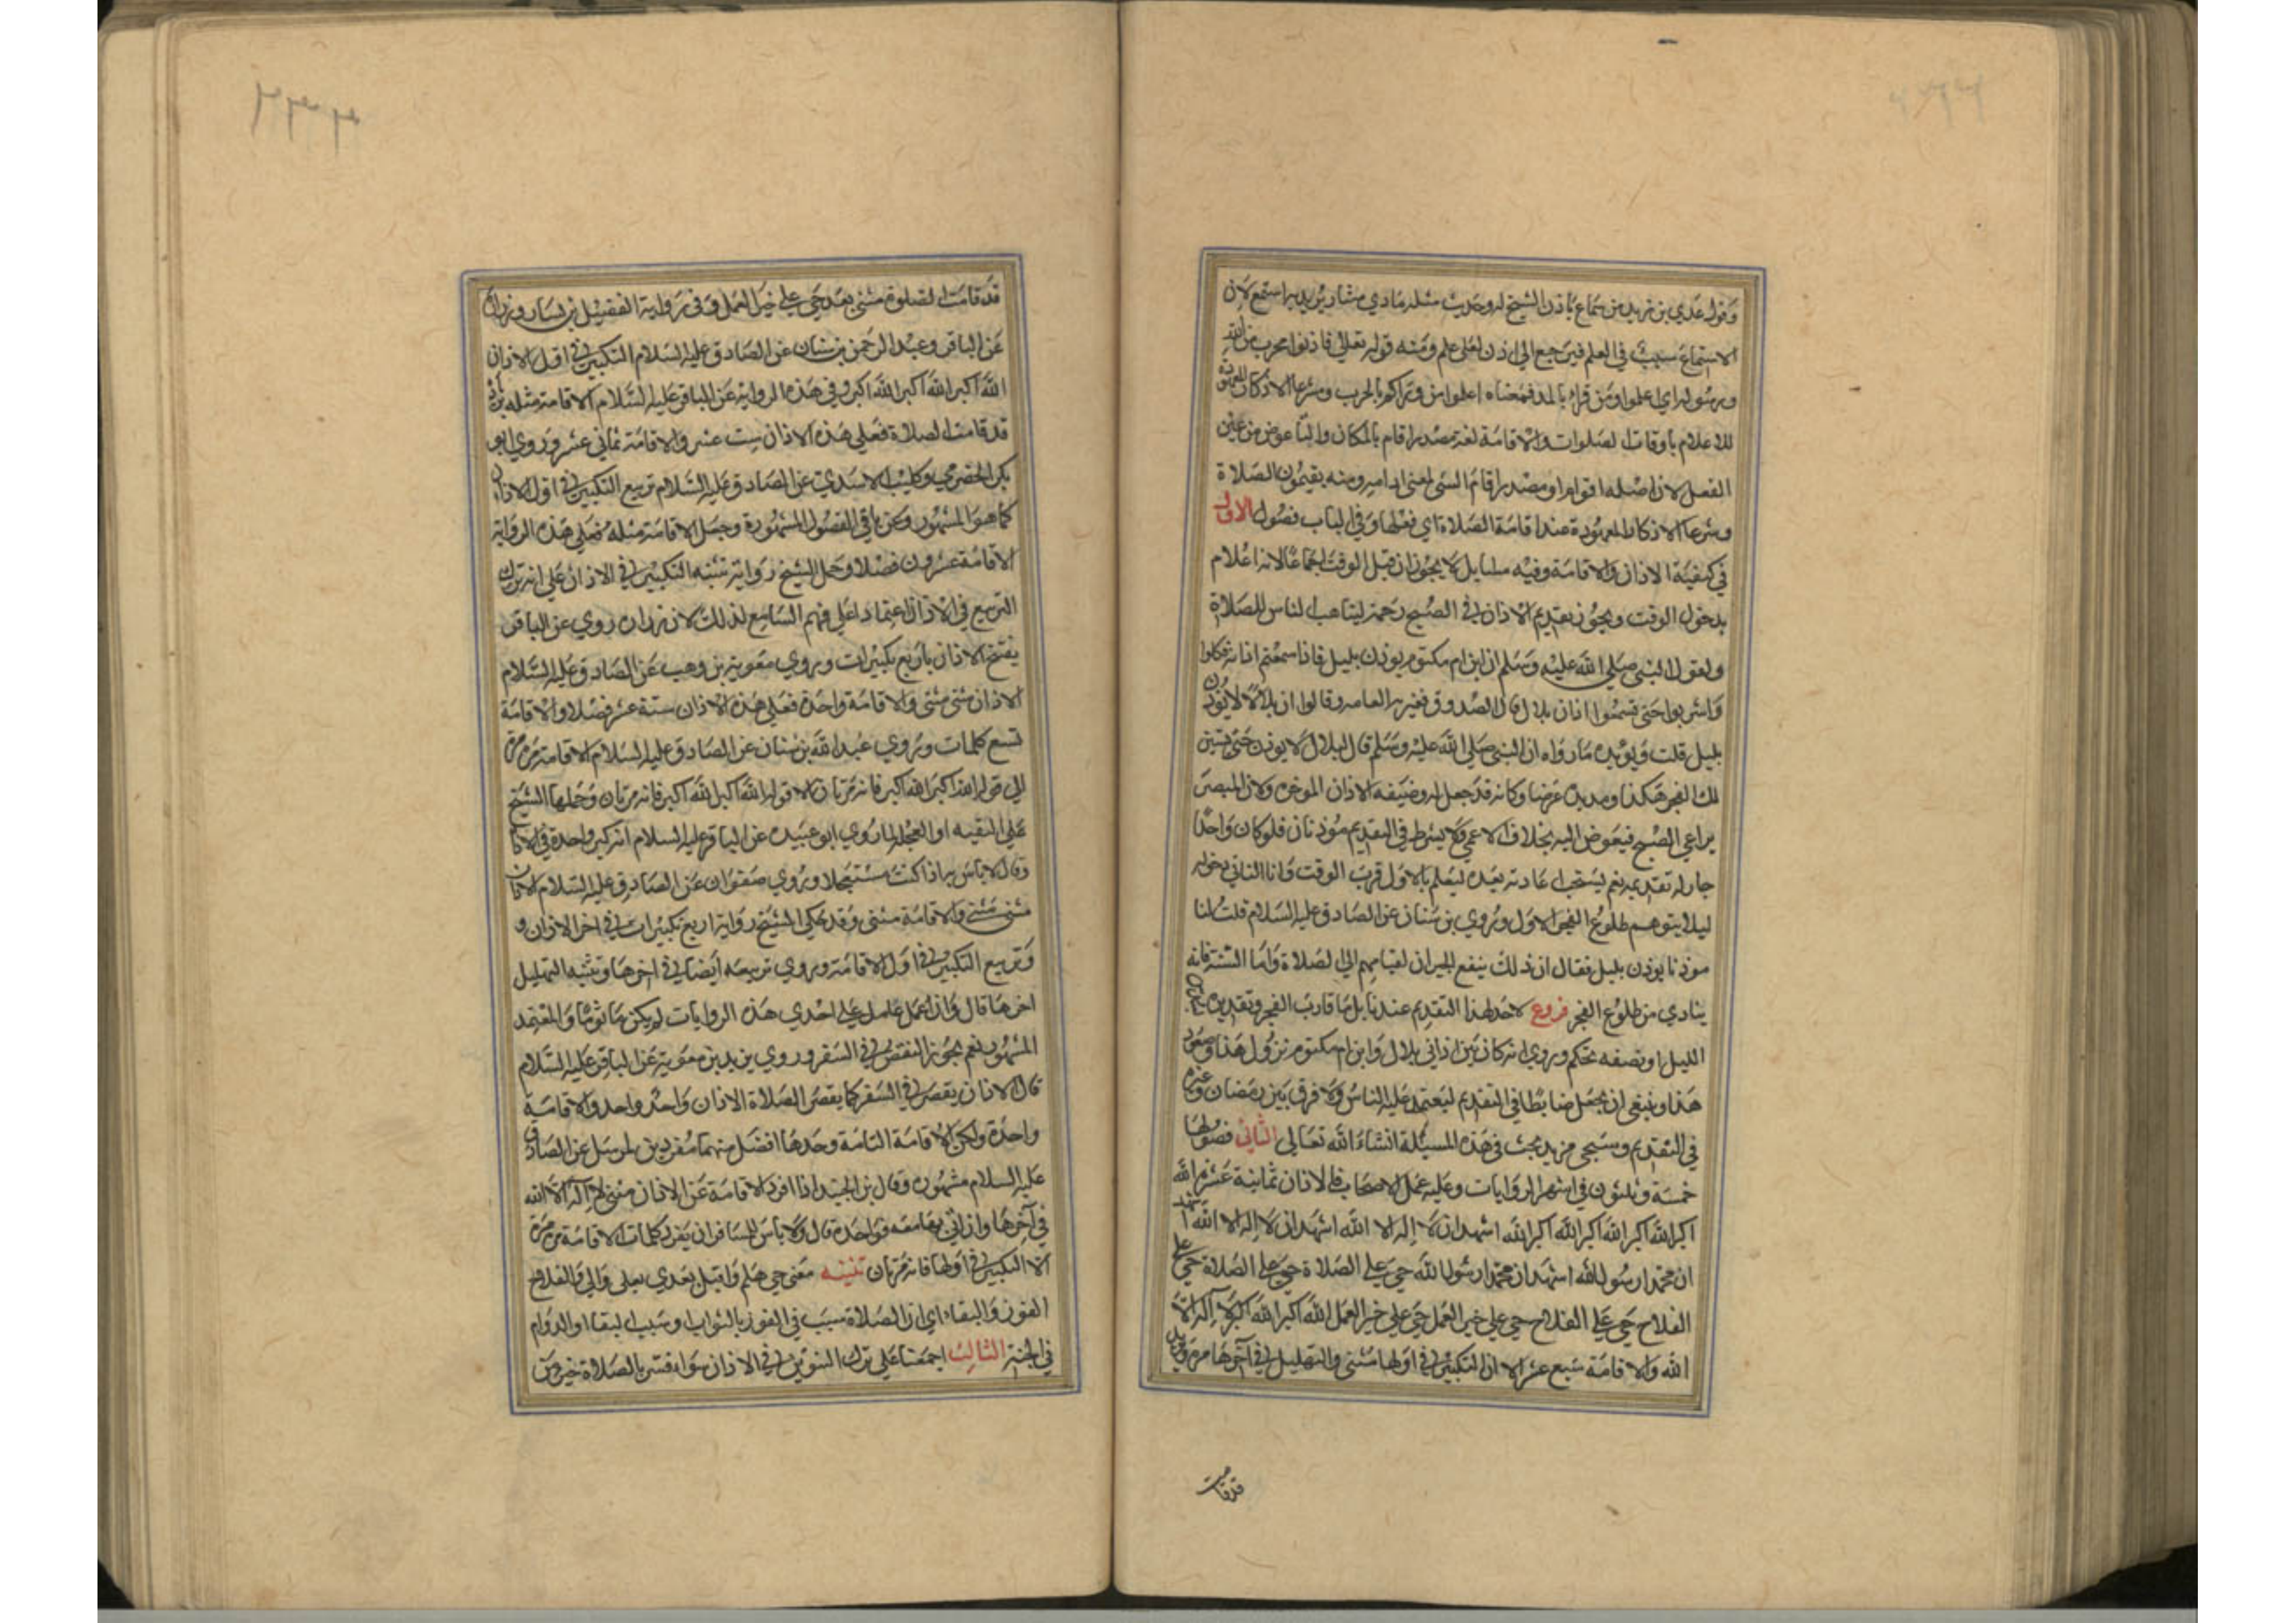 وقول عدي بن زيد من سماع ياذن الشيخ له وحديث مثله ماذي مشار يريد يراستمع لان
الاستماع سبب في العلم فيرجع الي اذن لعلي علم ومنه قوله تعالي فاذنوا بحرب من الله
ورسوله اي اعلموا ومن قراء بالمد فمعناه اعلموا من وراكم بالحرب وشرعا الاذكار
للاعلام باوقات الصلوات والاقامة لغة مصدر اقام بالمكان والتا عوض من عين
الفعل لان اصله اقوام او مصدر اقام الشي بمعني ادامه ومنه يقيمون الصلاة
وشرعا الاذكار المعهودة عند اقامة الصلاة اي فعلها وفي الباب فصول الاول
في كيفية الاذان والاقامة وفيه مسايل لا يجوز ان قبل الوقت اجماعا لانه اعلام
بدخول الوقت ويجوز تقديم الاذان في الصبح رخصة ليتاهب الناس للصلاة
ولقول النبي صلي الله عليه وسلم ان ابن ام مكتوم يوذن بليل فاذا سمعتم اذانه فكلوا
واشربوا حتي تسمعوا اذان بلال قال الصدوق فغيره العامه وقالوا ان بلالا لا يوذن
بليل قلت ويؤيده ما رواه ان النبي صلي الله عليه وسلم قال لبلال لا يوذن حتي يتبين
لك الفجر هكذا ومد يده عرضا وكانه قد جعل له وضيفه الاذان الموخره ولان المبصر
يراعي الصبح فيعوض اليه بخلاف الاعمي ولا يشرط في التقديم مؤذنان فلو كان واحدا
جاز له تقديمه نعم يستحب اعادته بعده ليعلم بالاول قرب الوقت وانا الثاني دخوله
ليلا يتوهم طلوع الفجر الاول وروي بن سنان عن الصادق عليه السلام قلت له لنا
موذنا يوذن بليل فقال ان ذلك ينفع الجيران لقيامهم الي الصلاة واما السنة فانه
ينادي من طلوع الفجر فروع لا حد لهذا التقديم عندنا بل ما قارب الفجر وتقديره
الليل او نصفه تحكم وروي انه كان بين اذاني بلال وابن ام مكتوم نزول هذا وصعود
هذا وينبغي ان يجعل ضابطا في التقديم ليعتمد عليه الناس ولا فرق بين رمضان وغيره
في التقديم وسيجي مزيد بحث في هذه المسئلة انشاء الله تعالي الثاني فصولها
خمسة وثلثون في اشهر الروايات وعليه عمل الاصحاب فالاذان ثمانية عشر الله
اكبر الله اكبر الله اكبر الله اكبر اشهد ان لا اله الا الله اشهد ان لا اله الا الله اشهد
ان محمدا رسول الله اشهد ان محمدا رسول الله حي علي الصلاة حي علي الصلاة حي علي
الفلاح حي علي الفلاح حي علي خير العمل حي علي خير العمل الله اكبر الله اكبر لا اله الا
الله والاقامة سبع عشر الا ان التكبير في اولها مثني والتهليل في آخرها مرة ويزيد
قد قامت
قد قامت الصلوة مثني بعد حي علي خير العمل وفي رواية الفضيل بن يسار وزرارة
عن الباقر وعبد الرحمن بن سنان عن الصادق عليه السلام التكبير في اول الاذان
الله اكبر الله اكبر الله اكبر وفي هذه الرواية عن الباقر عليه السلام الاقامة مثله بزيادة
قد قامت الصلاة فعلي هذه الاذان ست عشر والاقامة ثماني عشر وروي ابو
بكر الحضرمي وكليب الاسدي عن الصادق عليه السلام تربيع التكبير في اول الاذان
كما هو المشهور وعن باقي الفصول المشهورة وجعل الاقامة مثله فعلي هذه الرواية
الاقامة عشرون فصلا وحمل الشيخ رواية تثنيه التكبير في الاذان علي انه ترك
التربيع في الاذان اعتمادا علي فهم السامع لذلك لان زرارة روي عن الباقر
يفتح الاذان باربع تكبيرات وروي معوية بن وهب عن الصادق عليه السلام
الاذان مثني مثني والاقامة واحدة فعلي هذه الاذان ستة عشر فصلا والاقامة
تسع كلمات وروي عبد الله بن سنان عن الصادق عليه السلام الاقامة مرة مرة
الي قوله الله اكبر الله اكبر فانه مرتان الا قوله الله اكبر الله اكبر فانه مرتان وحملها الشيخ
علي التقيه او العجلة لما روي ابو عبيده عن الباقر عليه السلام انه كبر واحدة في الاذان
وقال لا باس به اذا كنت مستعجلا وروي صفوان عن الصادق عليه السلام الاذان
مثني مثني والاقامة مثني وقد حكي الشيخ رواية اربع تكبيرات في اخر الاذان و
وتربيع التكبير في اول الاقامة وروي تربيعه ايضا في اخرها وتثنيه التهليل
اخرها قال وان عمل عامل علي احدي هذه الروايات لم يكن ماثوما والمعتمد
المشهور نعم يجوز النقص في السفر وروي يزيد بن معوية عن الباقر عليه السلام
قال الاذان يقصر في السفر كما يقصر الصلاة الاذان واحد واحد والاقامة
واحدة ولكن الاقامة التامة وحدها افضل منهما مفردين لمرسل عن الصادق
عليه السلام مشهور وقال بن الجنيد اذا افرد الاقامة عن الاذان مثني لا اله الا الله
في آخرها وان اتي بها معه فواحدة قال ولا باس للمسافر ان يفرد كلمات الاقامة مرة مرة
الا التكبير في اولها فانه مرتان تنبيه معني حي هلم واقبل بعدي بعلي والي والفلاح
الفوز والبقاء اي ان الصلاة سبب في الفوز بالثواب وسبب البقا والدوام
في الجنة الثالث اجمعنا علي ترك التثويب في الاذان سواء فسر بالصلاة خير من